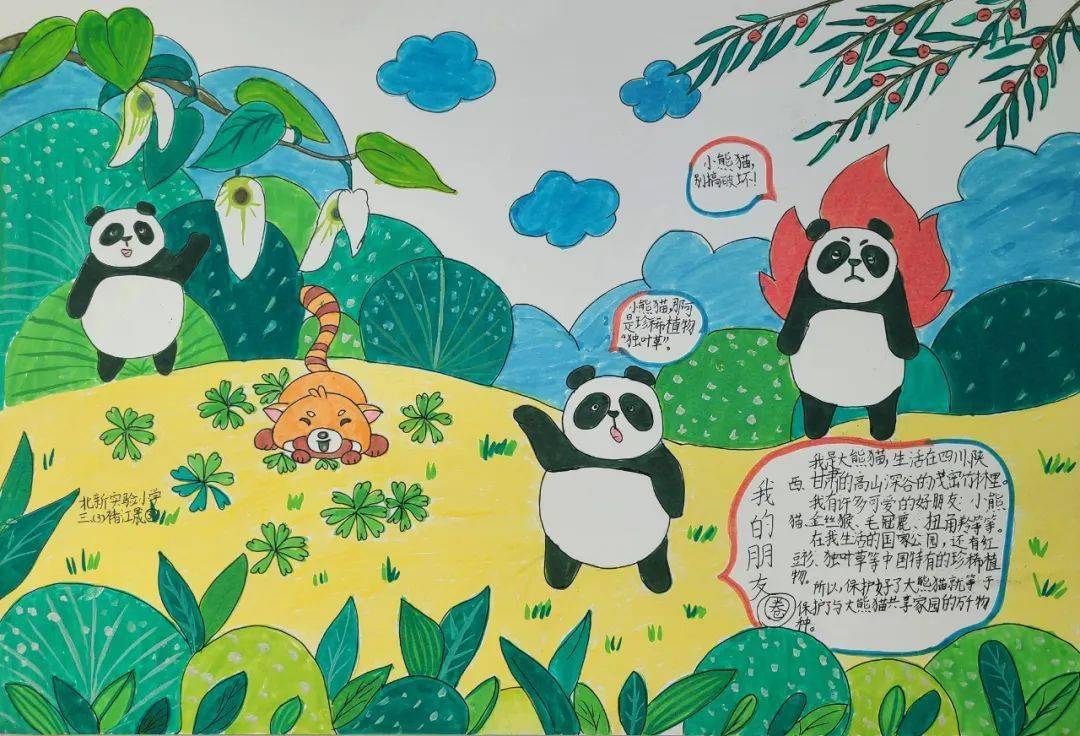 小熊猫,
别搞破坏!
小熊猫,那可
是珍稀植物
"独叶草"。
北新实验小学
三.(3)褚江晟
我的朋友
卷
我是大熊猫,生活在四川、陕
西、甘肃的高山深谷的茂密竹林里。
我有许多可爱的好朋友:小熊
猫、金丝猴、毛冠鹿、扭角羚等等。
在我生活的国家公园,还有红
豆杉、独叶草等中国特有的珍稀植
物。
所以,保护好了大熊猫就等于
保护了与大熊猫共享家园的万千物
种。